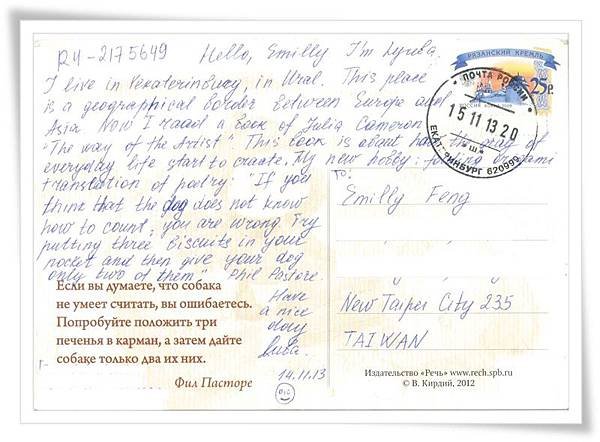 RU-2175649 Hello, Emilly I'm Lyuba.
I live in Yekaterinburg, in Ural. This place
is a geographical border between Europe and
Asia Now I raead a book of Julia Cameron
"The way of the Artist" This book is about how the gray of
everyday life start to create. My new hobby:
translation of poetry: "If you
think that the dog does not know
how to count, you are wrong Try
putting three biscuits in your
pocket and then give your dog
only two of them" Phil Pastore.
Have
a nice
day
14.11.13
Если вы думаете, что собака
не умеет считать, вы ошибаетесь.
Попробуйте положить три
печенья в карман, а затем дайте
собаке только два их них.
Фил Пасторе
РЯЗАНСКИЙ КРЕМЛЬ
25р.
РОССИЯ
ПОЧТА РОССИИ
15 11 13 20
620999
To:
Emilly Feng
New Taipei City 235
TAIWAN
Издательство «Речь» www.rech.spb.ru
© В. Кирдий, 2012